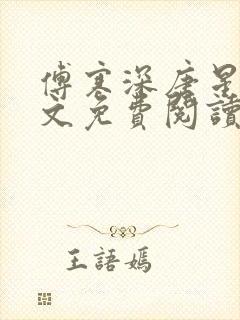 傅寒深唐星
文免費閱讀
王語嫣